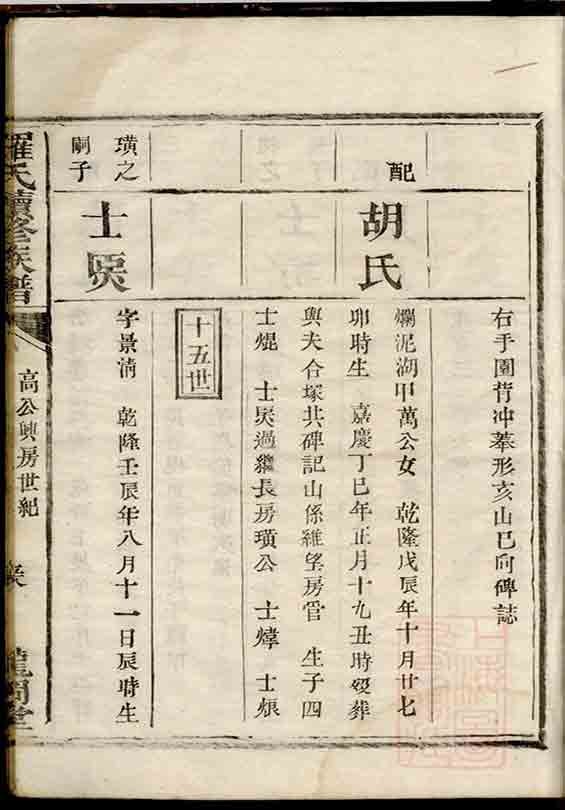 右手園背冲墓形亥山巳向碑誌
配
胡氏
爛泥湖甲萬公女 乾隆戊辰年十月廿七
卯時生 嘉慶丁巳年正月十九丑時歿葬
與夫合塚共碑記山係維望房管 生子四
士焜 士煚過繼長房璜公 士煒 士煨
十五世
璜之
嗣子
士煚
字景清 乾隆壬辰年八月十一日辰時生
羅氏續修族譜
高公興房世紀